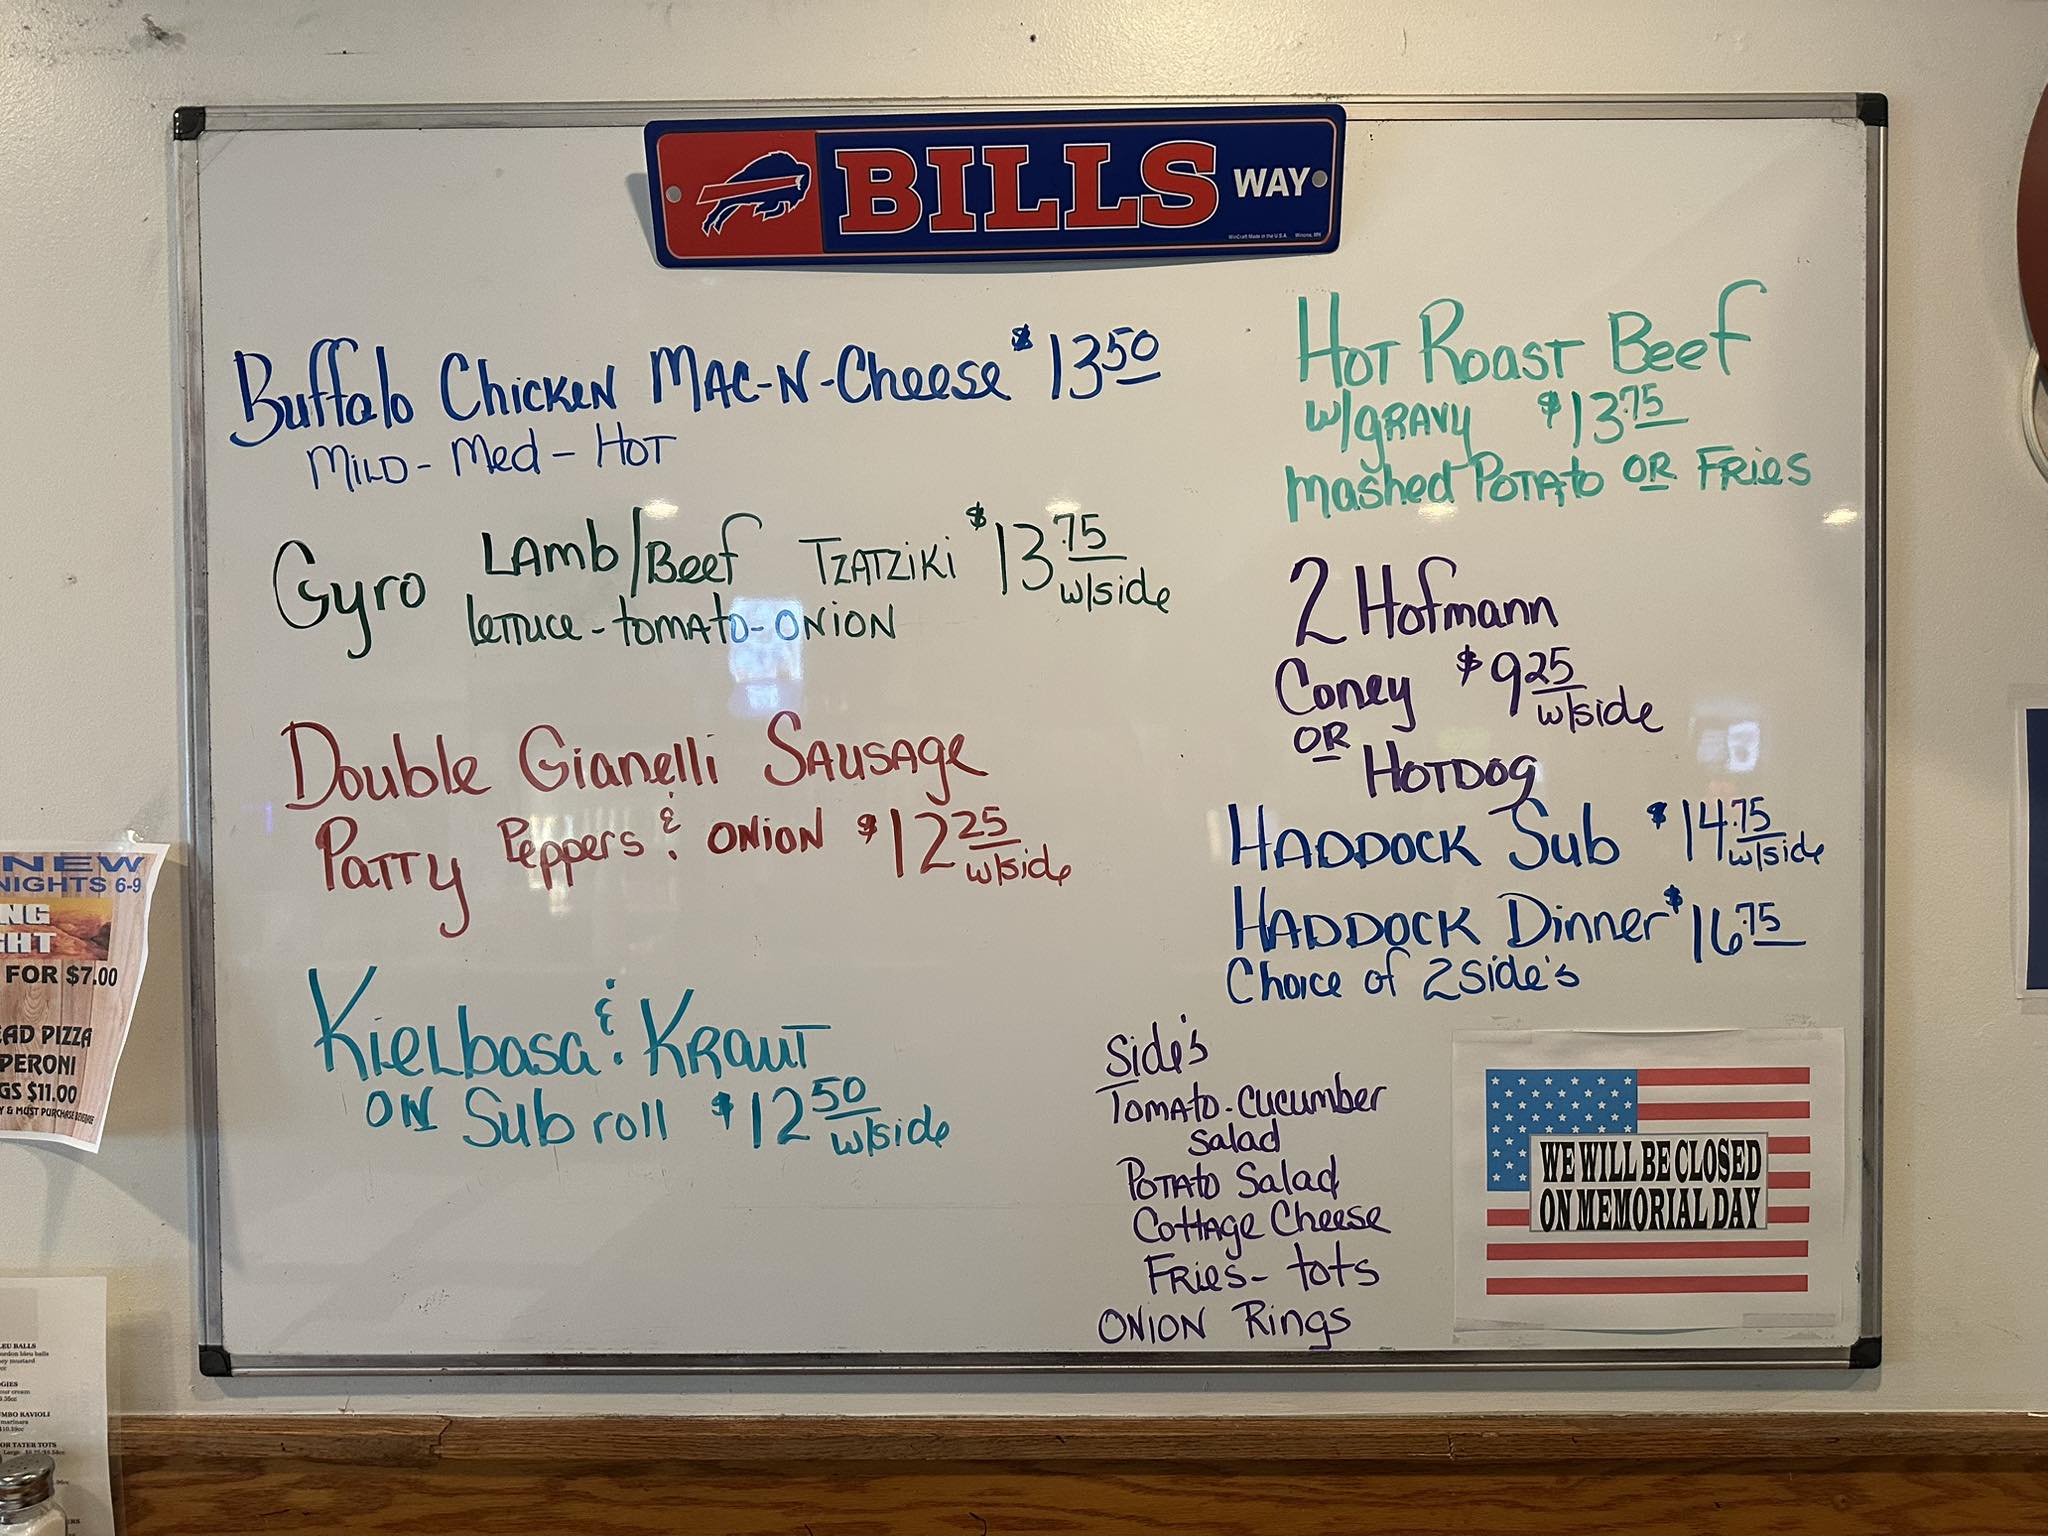 BILLS WAY
WinCraft Made in the U.S.A. Winona, MN
Buffalo Chicken Mac-N-Cheese $13.50
Mild - Med - Hot
Gyro Lamb/Beef Tzatziki $13.75
w/side
lettuce - tomato - onion
Double Gianelli Sausage
Patty Peppers & onion $12.25
w/side
Kielbasa & Kraut
on Sub roll $12.50
w/side
Hot Roast Beef
w/gravy $13.75
mashed Potato or Fries
2 Hofmann
Coney $9.25
w/side
or
Hotdog
Haddock Sub $14.75
w/side
Haddock Dinner $16.75
Choice of 2 side's
Side's
Tomato-Cucumber
Salad
Potato Salad
Cottage Cheese
Fries - tots
Onion Rings
WE WILL BE CLOSED
ON MEMORIAL DAY
NEW
NIGHTS 6-9
NG
HT
FOR $7.00
AD PIZZA
PERONI
GS $11.00
Y & MUST PURCHASE BEVERAGE
LEU BALLS
GIES
our cream
MBO RAVIOLI
marinara
OR TATER TOTS